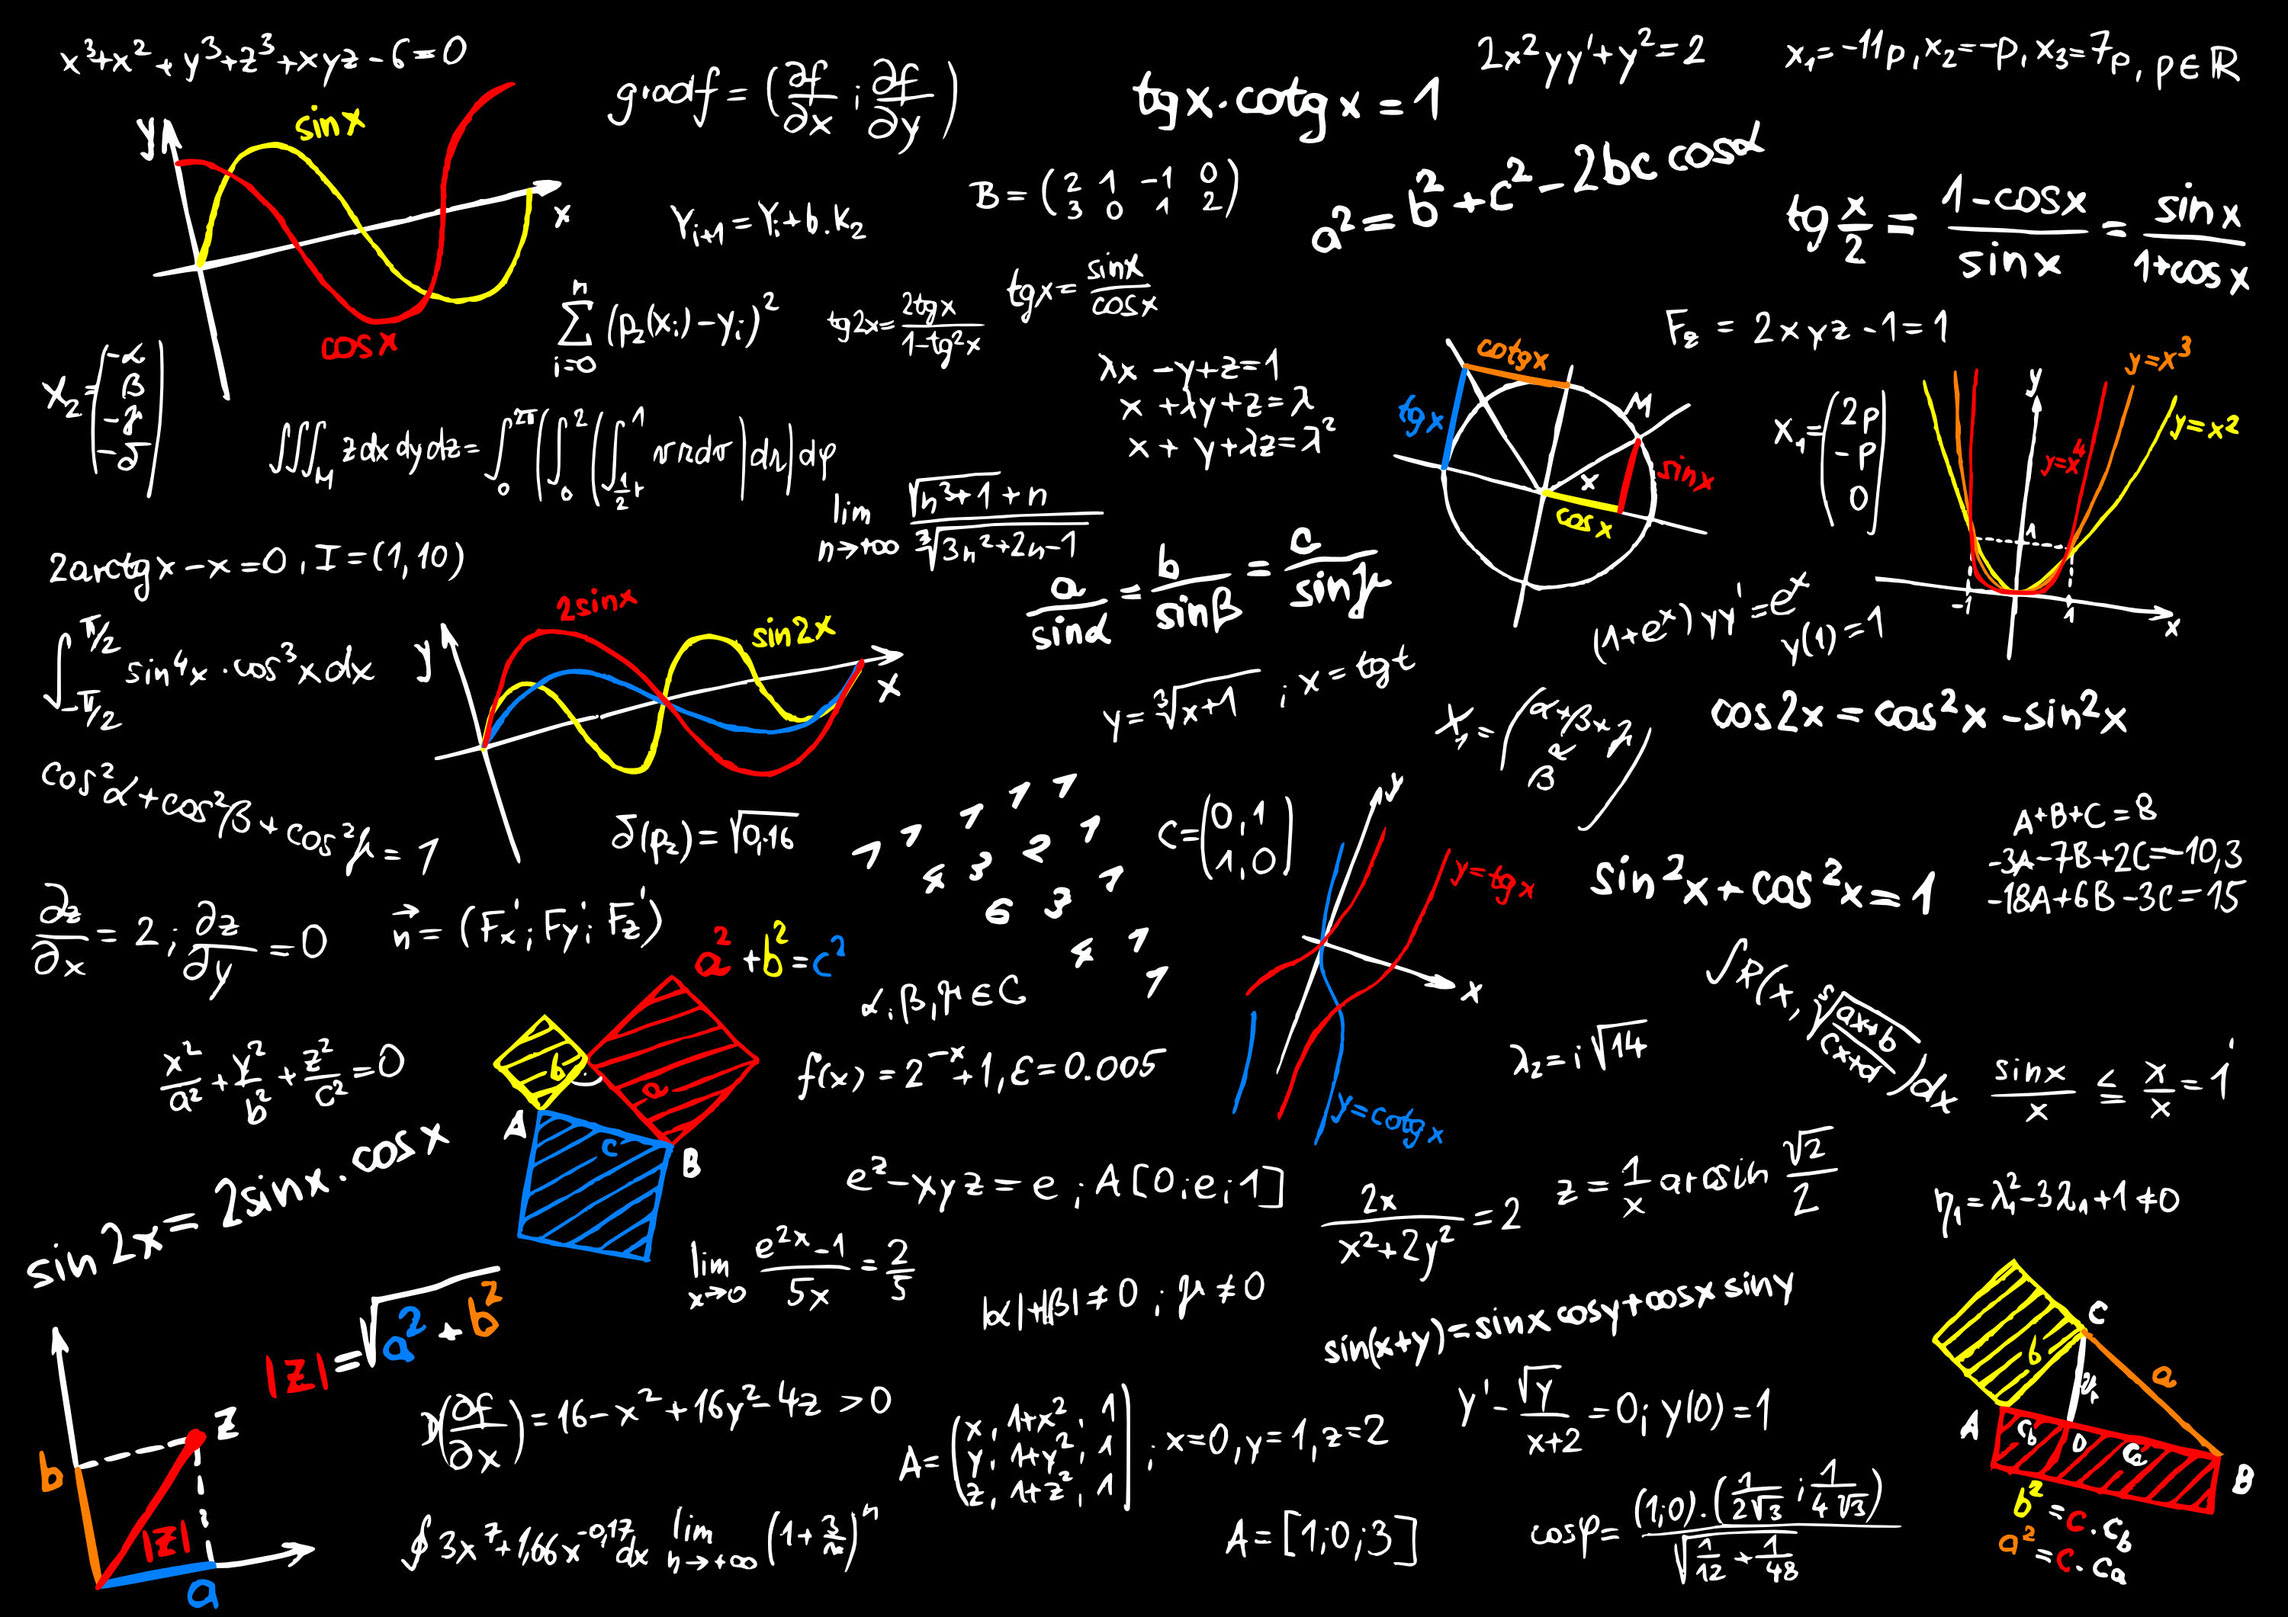 x³+x²+y³+z³+xyz-6=0
gradf = (∂f/∂x ; ∂f/∂y)
tgx·cotgx = 1
2x²yy'+y²=2
x₁=-11p, x₂=-p, x₃=7p, p∈ℝ
y
sinx
x
cosx
Y_{i+1} = Y_i + b.K₂
B = (2 1 -1 0
3 0 1 2)
a² = b²+c²-2bc cosα
tg x/2 = (1-cosx)/sinx = sinx/(1+cosx)
∑_{i=0}^{n} (p₂(x_i)-y_i)²
tg2x = 2tgx/(1-tg²x)
tgx = sinx/cosx
F_z = 2xyz-1=1
X₂ = (-α
β
-γ
-δ)
∭_M zdxdydz = ∫_0^{2π}(∫_0^2(∫_{½r}^1
dφ
λx-y+z=1
x+λy+z=λ
x+y+λz=λ²
cotgx
tgx
M
sinx
x
cosx
X₁ = (2p
-p
0)
y
y=x³
y=x²
y=x⁴
1
-1
1
x
lim_{n→+∞} (√(n³+1)+n)/∛(3n²+2n-1)
2arctgx-x=0, I=(1,10)
a/sinα = b/sinβ = c/sinγ
(1+e^x)yy'=e^x
y(1)=1
∫_{-π/2}^{π/2} sin⁴x·cos³xdx
y
2sinx
sin2x
x
y=∛(x+1) ; x=tgt
X₁ = (α+β+γ
α
β)
cos2x = cos²x-sin²x
cos²α+cos²β+cos²γ=1
δ(p₂)=√0,16
1 1 1 1 1
4 3 2 1
6 3 1
4 1
1
C=(0,1
1,0)
y
y=tgx
x
y=cotgx
sin²x+cos²x=1
A+B+C=8
-3A-7B+2C=-10,3
-18A+6B-3C=15
∂z/∂x = 2 ; ∂z/∂y = 0
n⃗ = (F'x; F'y; F'z)
a²+b²=c²
b
a
A
c
B
α,β,γ∈C
∫R(x, ⁵√((ax+b)/(cx+d)))dx
x²/a²+y²/b²+z²/c²=0
f(x)=2^{-x}+1, ε=0.005
λ₂=i√14
sinx/x ≤ x/x = 1
sin2x=2sinx·cosx
e^z-xyz=e ; A[0;e;1]
2x/(x²+2y²)=2
z=1/x arcsin √2/2
η₁=λ₁²-3λ₁+1≠0
lim_{x→0} (e^{2x}-1)/5x = 2/5
|α|+|β|≠0 ; γ≠0
sin(x+y)=sinx cosy+cosx siny
|z|=√(a²+b²)
b
z
|z|
a
D(∂f/∂x)=16-x²+16y²-4z >0
A=(x, 1+x², 1
y, 1+y², 1
z, 1+z², 1) ; x=0, y=1, z=2
y'-√y/(x+2)=0; y(0)=1
C
b
a
A
c_b
D
c_a
B
b²=c.c_b
a²=c.c_a
∮3x⁷+1,66x^{-0,17}dx
lim_{n→+∞} (1+3/n)^n
A=[1;0;3]
cosφ=((1;0).(1/(2√3);1/(4√3)))/√(1/12+1/48)